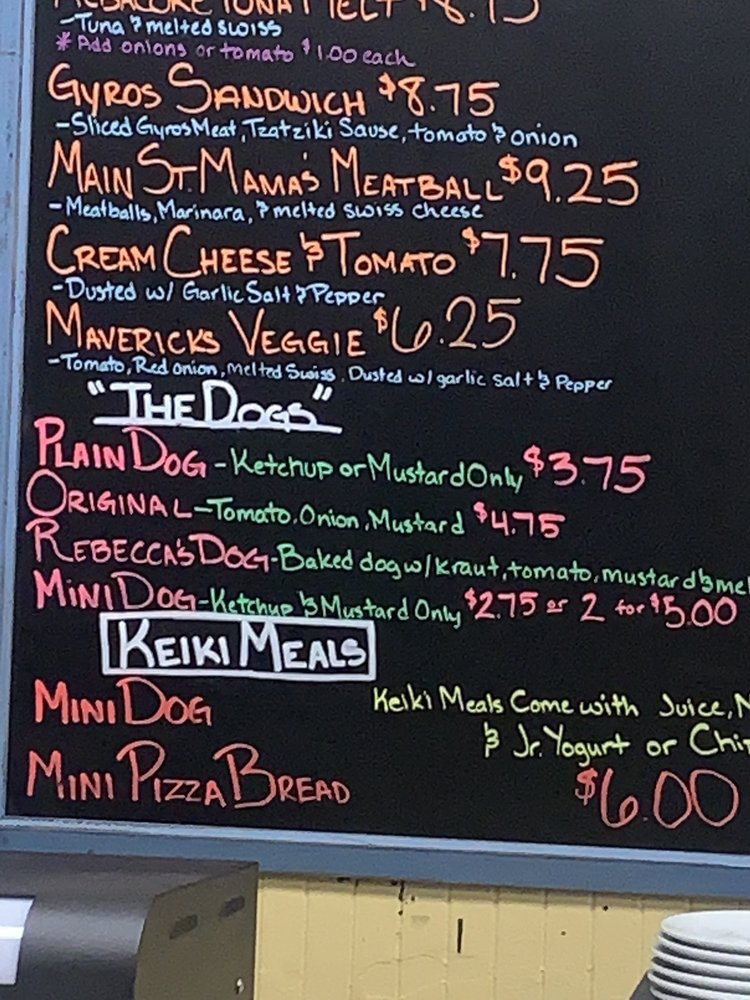 ALBACORE TUNA MELT $8.75
-Tuna & melted swiss
* Add onions or tomato $1.00 each
GYROS SANDWICH $8.75
-Sliced Gyros Meat, Tzatziki Sause, tomato & onion
MAIN ST. MAMA'S MEATBALL $9.25
-Meatballs, Marinara, & melted swiss cheese
CREAM CHEESE & TOMATO $7.75
-Dusted w/ Garlic Salt & Pepper
MAVERICKS VEGGIE $6.25
-Tomato, Red onion, melted Swiss. Dusted w/ garlic salt & Pepper
"THE DOGS"
PLAIN DOG - Ketchup or Mustard Only $3.75
ORIGINAL - Tomato, Onion, Mustard $4.75
REBECCA'S DOG - Baked dog w/ kraut, tomato, mustard & mel
MINI DOG - Ketchup & Mustard Only $2.75 or 2 for $5.00
KEIKI MEALS
MINI DOG
Keiki Meals Come with Juice,
& Jr. Yogurt or Chi
MINI PIZZA BREAD $6.00